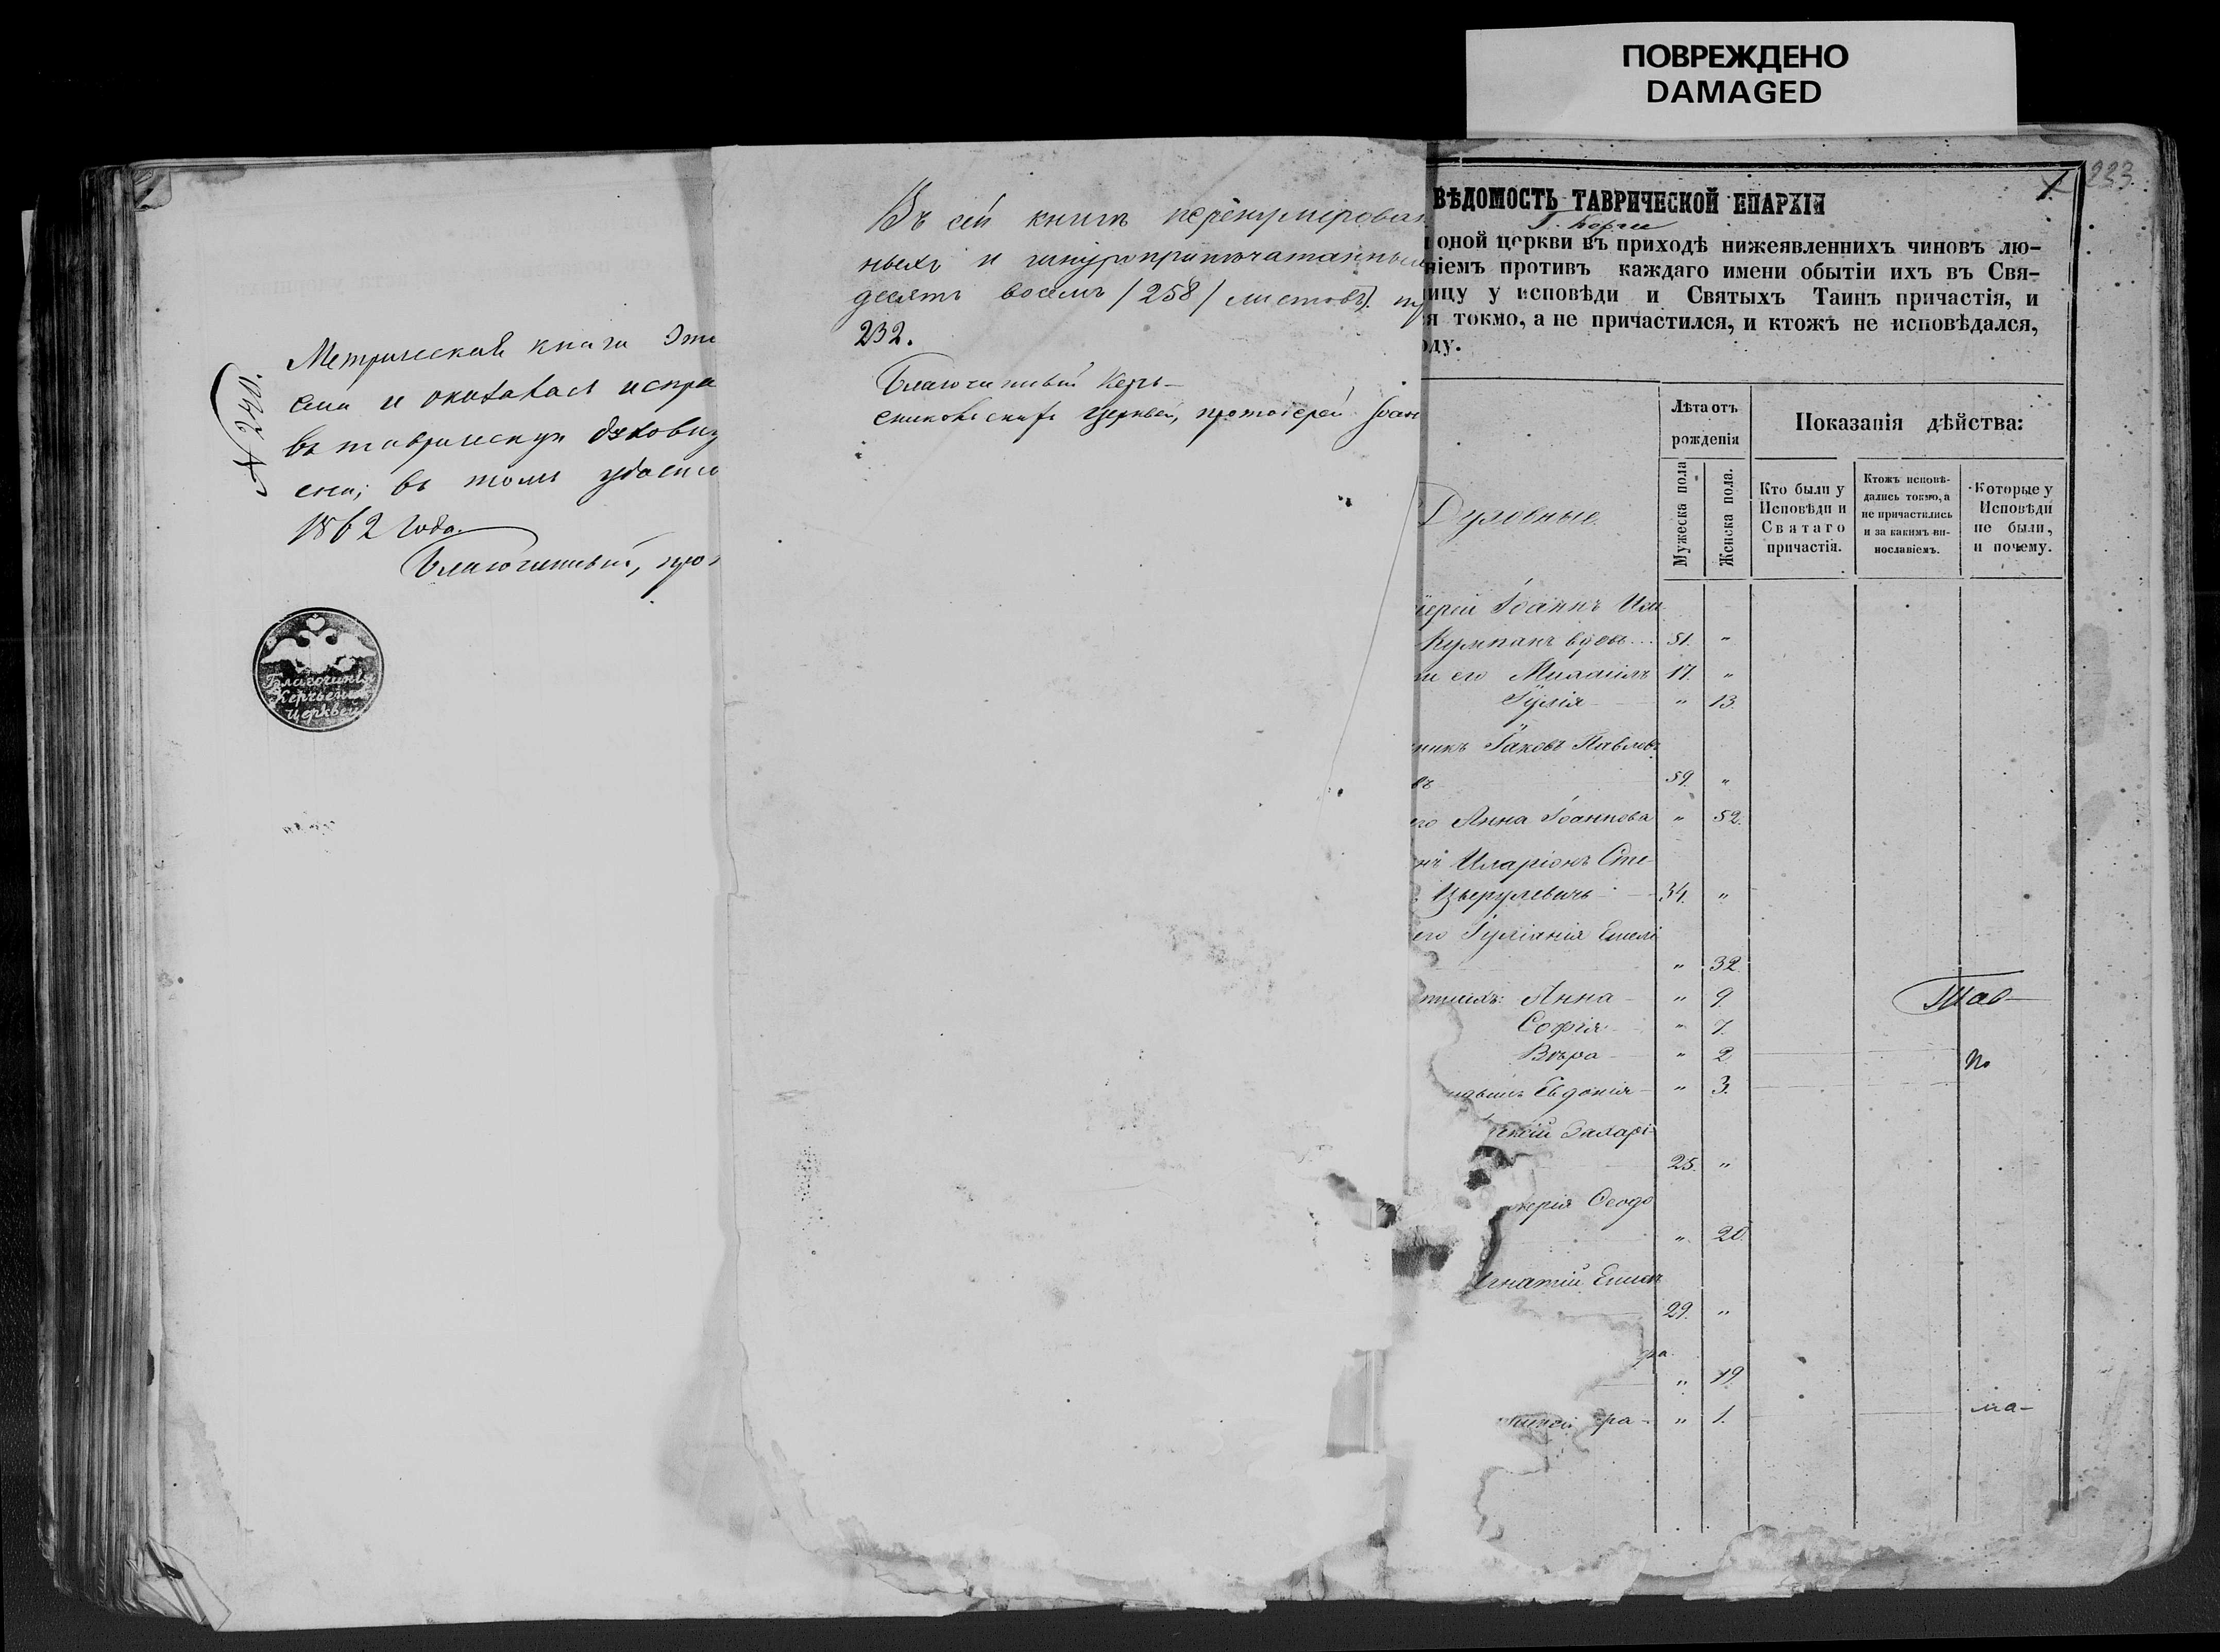 ПОВРЕЖДЕНО
DAMAGED
N 240.
Метрическая книга
сии и оказалась испра
въ таврическую духовну
сенъ; въ томъ удосто
1862 года.
Благочинный, про
Благочинія
Керченскихъ
церквей
Въ сей книгѣ перенумерован
ныхъ и шнуроприпечатанны
десять восемь /258/ листовъ
232.
Благочинный Керчь-
Еникольскихъ церквей, протоіерей Іоан
233.
1.
ВѢДОМОСТЬ ТАВРИЧЕСКОЙ ЕПАРХІИ
Г. Керчи
оной церкви въ приходѣ нижеявленнихъ чиновъ лю-
ніемъ противъ каждаго имени обытіи ихъ въ Свя-
ицу у исповѣди и Святыхъ Таинъ причастія, и
я токмо, а не причастился, и ктожъ не исповѣдался,
оду.
Лѣта отъ
рожденія
Показанія дѣйства:
Мужеска пола
Женска пола.
Кто были у
Исповѣди и
Святаго
причастія.
Ктожъ исповѣ-
дались токмо, а
не причастились
и за какимъ ви-
нославіемъ.
Которые у
Исповѣди
не были,
и почему.
Духовные.
іерей Іоаннъ
Кумпанъ вдовъ 51. "
его Михаилъ 17. "
Іулія " 13.
никъ Іаковъ Павловъ
въ 59. "
его Анна Іоаннова " 52.
нъ Иларіонъ Сте-
Цыерулевичъ 34. "
его Іуліанія Емелі
" 32.
Анна " 9.
Тав-
Софія " 7.
Вѣра " 2 по
Евдокія " 3.
Захарі-
25. "
керія Ѳеодо
" 20.
Игнатій
29. "
ра
" 19.
ра " 1. ма-